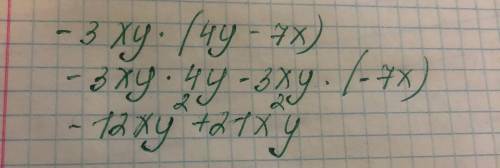 -3xy·(4y-7x)
-3xy·4y-3xy·(-7x)
-12xy²+21x²y